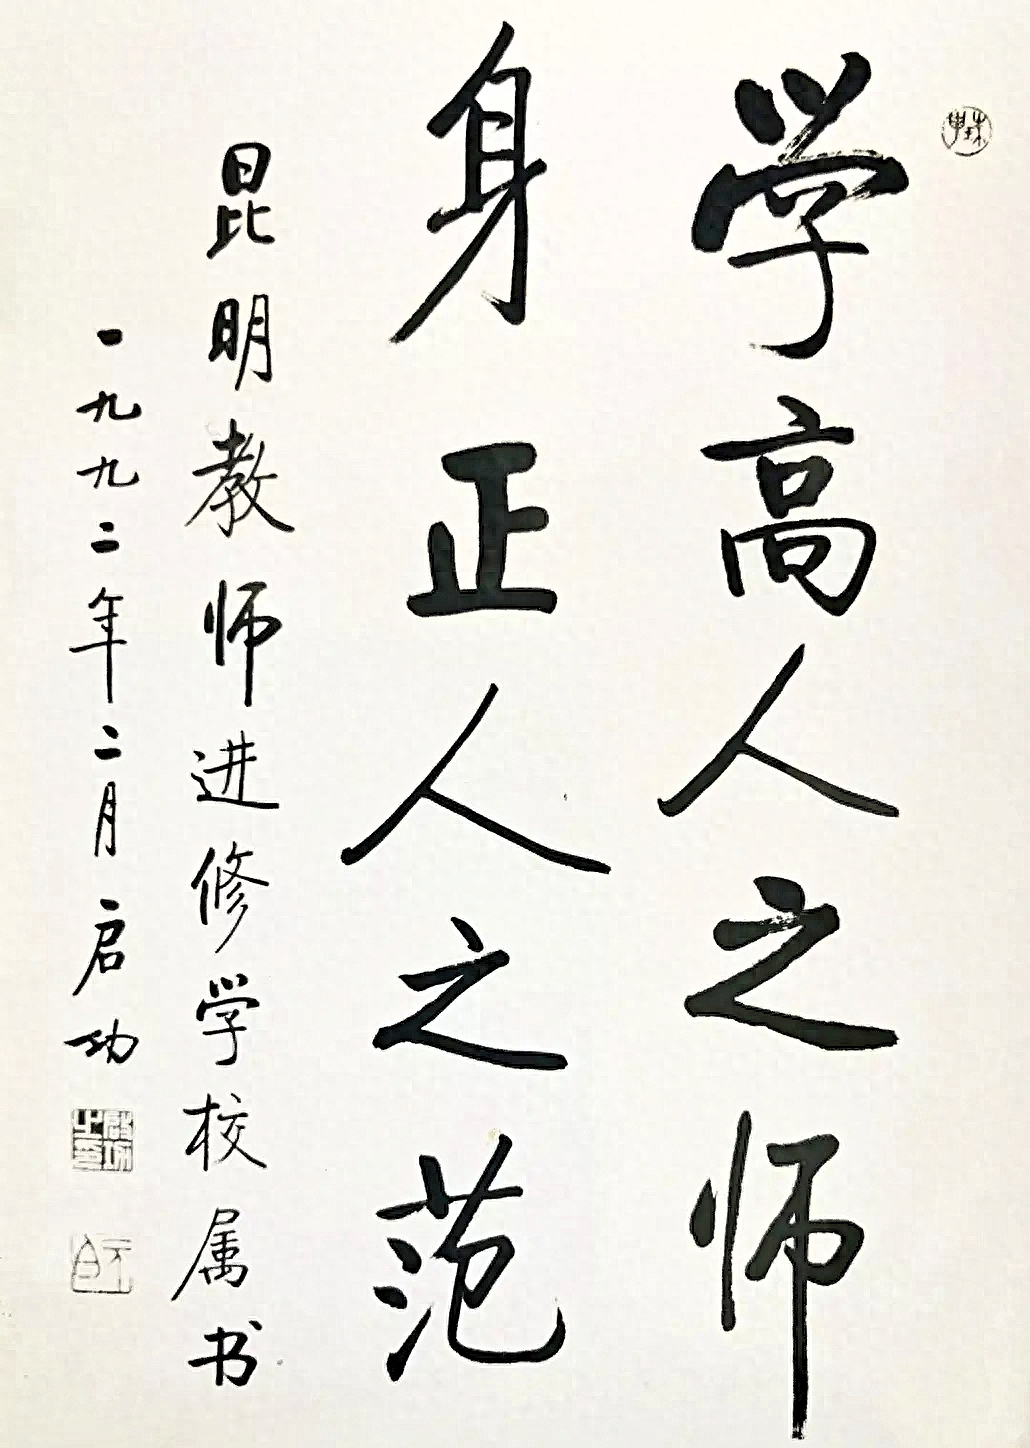 学高人之师
身正人之范
昆明教师进修学校属书
一九九二年二月启功